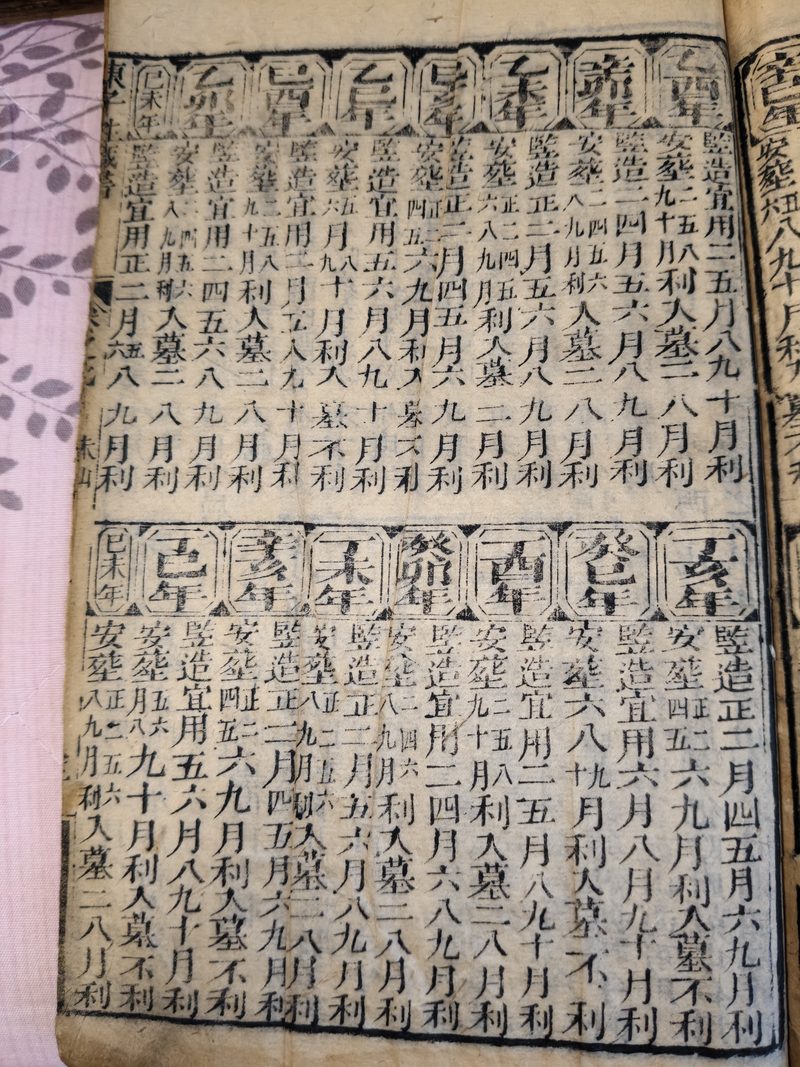 辛巳年
安葬五六八九十月利入墓不利
乙酉年
竪造宜用二五月八九十月利
安葬二五八九十月利入墓二八月利
辛卯年
竪造二四月五六月八九月利
安葬二四五六八九月利入墓二八月利
乙未年
竪造正二月五六月八九月利
安葬正二四五六八九月利入墓二月利
己亥年
竪造正二月四五月六九月利
安葬正二四五六九月利入墓不利
乙巳年
竪造宜用五六月八九十月利
安葬五六月八九十月利入墓不利
己酉年
竪造宜用二月五八九十月利
安葬二五八九十月利入墓二八月利
乙卯年
竪造宜用二四五六八九月利
安葬二四五六八九月利入墓二八月利
己未年
竪造宜用正二月五六八九月利
丁亥年
竪造正二月四五月六九月利
安葬正二四五六九月利入墓不利
癸巳年
竪造宜用六月八月九十月利
安葬六八九十月利入墓不利
丁酉年
竪造宜用二五月八九十月利
安葬二五八九十月利入墓二八月利
癸卯年
竪造宜用二四月六八九月利
安葬二四六八九月利入墓二八月利
丁未年
竪造正二月五六月八九月利
安葬正二五六八九月利入墓二八月利
辛亥年
竪造正二月四五月六九月利
安葬正二四五六九月利入墓不利
丁巳年
竪造宜用五六月八九十月利
安葬五六月八九十月利入墓不利
己未年
安葬正二五六八九月利入墓二八月利
陳子性藏書
卷之九
未山